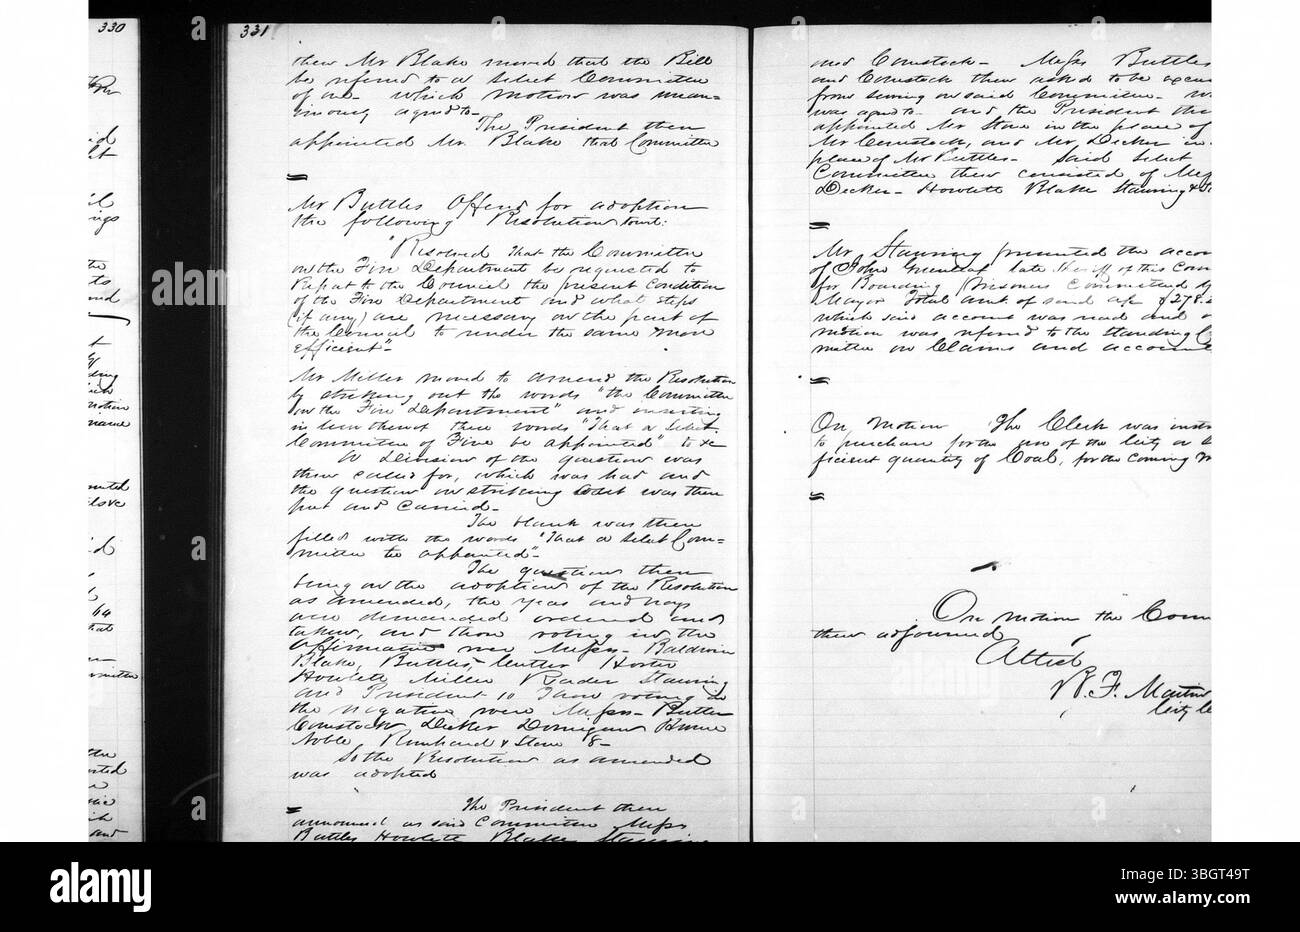 330
331
then Mr Blake moved that the Bill
be refered to a Select Committee
of one which motion was unan=
imously agreed to
The President then
appointed Mr. Blake that Committee
Mr Buttles Offered for adoption
the following Resolution to wit:
"Resolved that the Committee
on the Fire Department be requested to
Report to the Council the present Condition
of the Fire Department and what steps
(if any) are necessary on the part of
the Council to render the same more
efficient"
Mr Miller moved to amend the Resolution
by striking out the words "the Committee
on the Fire Department" and inserting
in lieu thereof these words "That a Select
Committee of Five be appointed" to &c
A Division of the question was
then called for, which was had and
the question on striking out was then
put and carried
The blank was then
filled with the words "That a select Com=
mittee be appointed"
The question then
being on the adoption of the Resolution
as amended, the yeas and nays
were demanded ordered and
taken, and those voting in the
Affirmative were Messrs Baldwin
Blake, Buttles, Horter
Howlett Miller Reader Stanring
and President 10 Those voting in
the negative were Messrs Butler
Comstock Decker Donigan Hume
Noble Reinhard & Stone 8
So the Resolution as amended
was adopted
The President then
announced as said Committee Messrs
Buttles Howlett Blake
and Comstock Messrs Buttles
and Comstock then asked to be
from serving on said Committee
was agreed to and the President
appointed Mr Stone in the place of
Mr Comstock, and Mr Decker in
place of Mr Buttles Said Select
Committee then consisted of
Decker Howlett Blake Stanring &
Mr Stanring presented the
of John Greenleaf late Sheriff of this
for Boarding Prisoners Committed
Mayor Total amt of said
which said account was read and
motion was refered to the Standing
mittee on Claims and
On Motion The Clerk was
to purchase for the use of the City a
ficient quantity of Coal, for the coming
On Motion the
then adjourned
Attest
F. Martin
City
alamy
Image ID: 3BGT49T
www.alamy.com